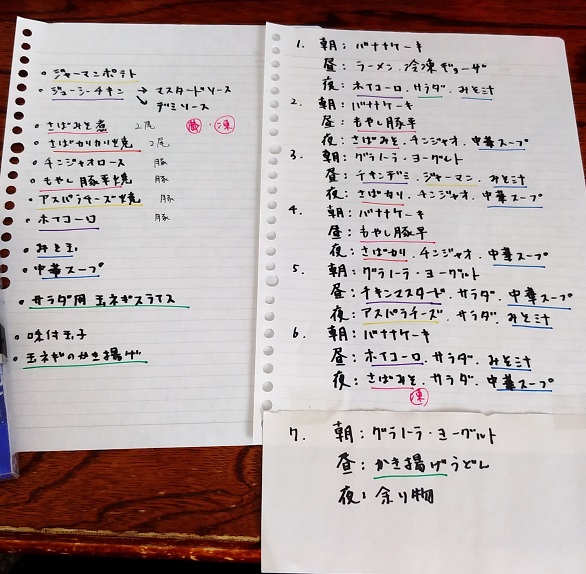 ・ジャーマンポテト
・ジューシーチキン → マスタードソース
→ デミソース
・さばみそ煮 2尾 蔵・凍
・さばカリカリ焼 2尾
・チンジャオロース 豚
・もやし豚平焼 豚
・アスパラチーズ焼 豚
・ホイコーロ 豚
・みそ玉
・中華スープ
・サラダ用 玉ネギスライス
・味付玉子
・玉ネギのかき揚げ
1. 朝:バナナケーキ
昼:ラーメン.冷凍ギョーザ
夜:ホイコーロ.サラダ.みそ汁
2. 朝:バナナケーキ
昼:もやし豚平
夜:さばみそ.チンジャオ.中華スープ
3. 朝:グラノーラ・ヨーグルト
昼:チキンデミ.ジャーマン.みそ汁
夜:さばカリ.チンジャオ.中華スープ
4. 朝:バナナケーキ
昼:もやし豚平
夜:さばカリ.チンジャオ.中華スープ
5. 朝:グラノーラ・ヨーグルト
昼:チキンマスタード.サラダ.中華スープ
夜:アスパラチーズ.サラダ.みそ汁
6. 朝:バナナケーキ
昼:ホイコーロ.サラダ.みそ汁
夜:さばみそ.サラダ.中華スープ
凍
7. 朝:グラノーラ・ヨーグルト
昼:かき揚げうどん
夜:余り物